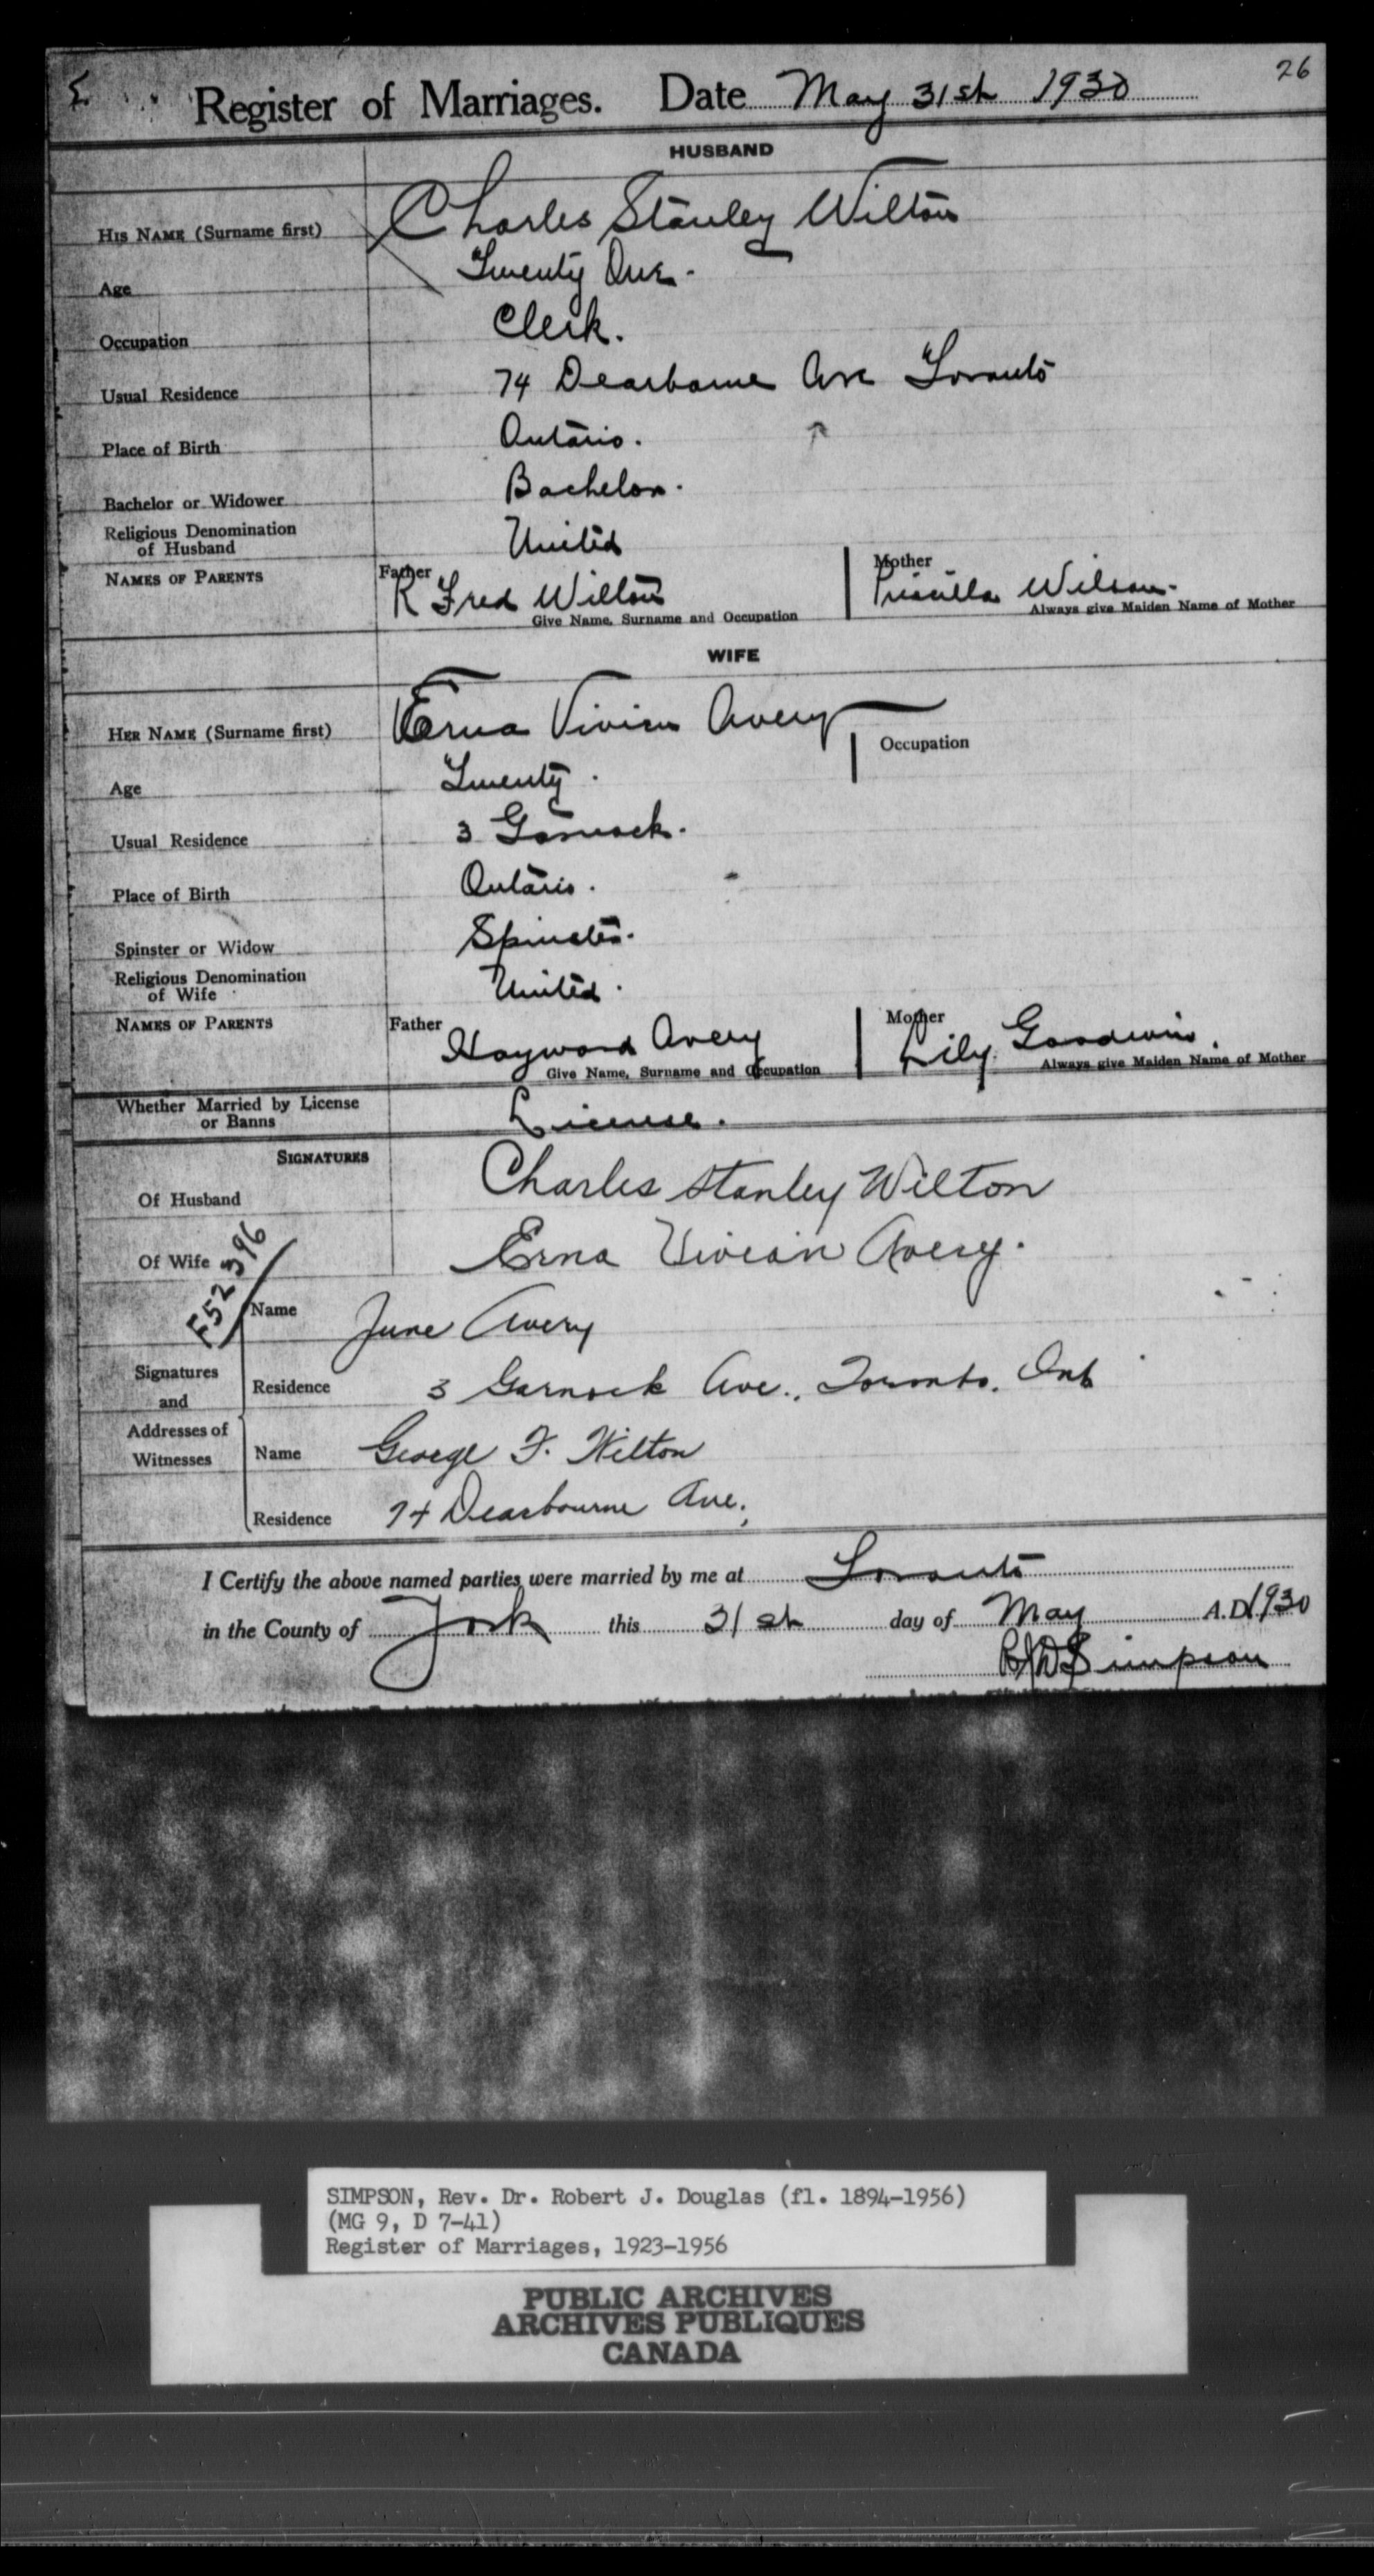 26
Register of Marriages. Date May 31st 1930
HUSBAND
His Name (Surname first) Charles Stanley Wilton
Age Twenty One.
Occupation Clerk.
Usual Residence 74 Dearbourne Ave Toronto
Place of Birth Ontario.
Bachelor or Widower Bachelor.
Religious Denomination of Husband United
Names of Parents Father R Fred Wilton Mother Priscilla Wilson.
Give Name, Surname and Occupation Always give Maiden Name of Mother
WIFE
Her Name (Surname first) Erna Vivian Avery Occupation
Age Twenty.
Usual Residence 3 Garnock.
Place of Birth Ontario.
Spinster or Widow Spinster.
Religious Denomination of Wife United.
Names of Parents Father Hayward Avery Mother Lily Goodwin.
Give Name, Surname and Occupation Always give Maiden Name of Mother
Whether Married by License or Banns License.
Signatures
Of Husband Charles Stanley Wilton
Of Wife Erna Vivian Avery.
F52396
Name June Avery
Signatures and Addresses of Witnesses
Residence 3 Garnock Ave., Toronto. Ont
Name George F. Wilton
Residence 74 Dearbourne Ave.,
I Certify the above named parties were married by me at Toronto
in the County of York this 31st day of May A.D. 1930
RJDSimpson
SIMPSON, Rev. Dr. Robert J. Douglas (fl. 1894-1956)
(MG 9, D 7-41)
Register of Marriages, 1923-1956
PUBLIC ARCHIVES
ARCHIVES PUBLIQUES
CANADA